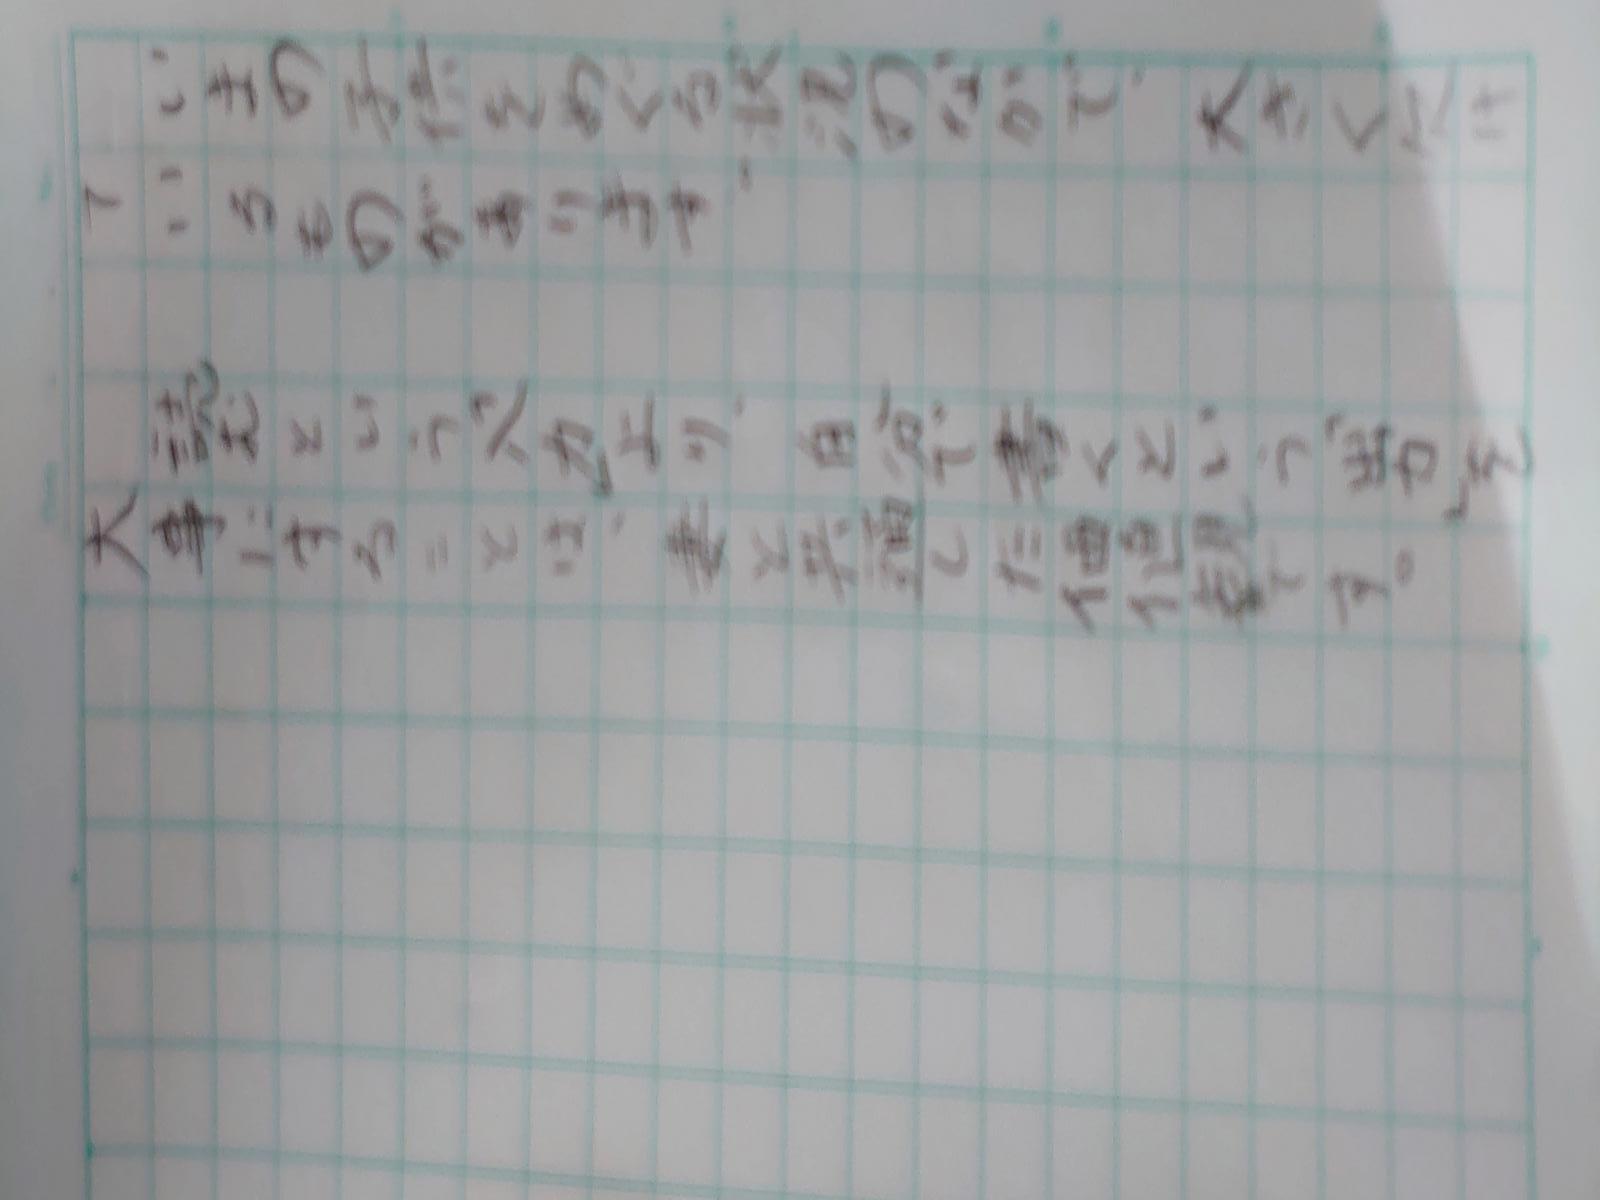 いまの子供をめぐる状況のなかで、大きく欠け
ているものがあります。
読むという入力より、自分で書くという「出力」を
大事にすることは、妻と共通した価値観です。